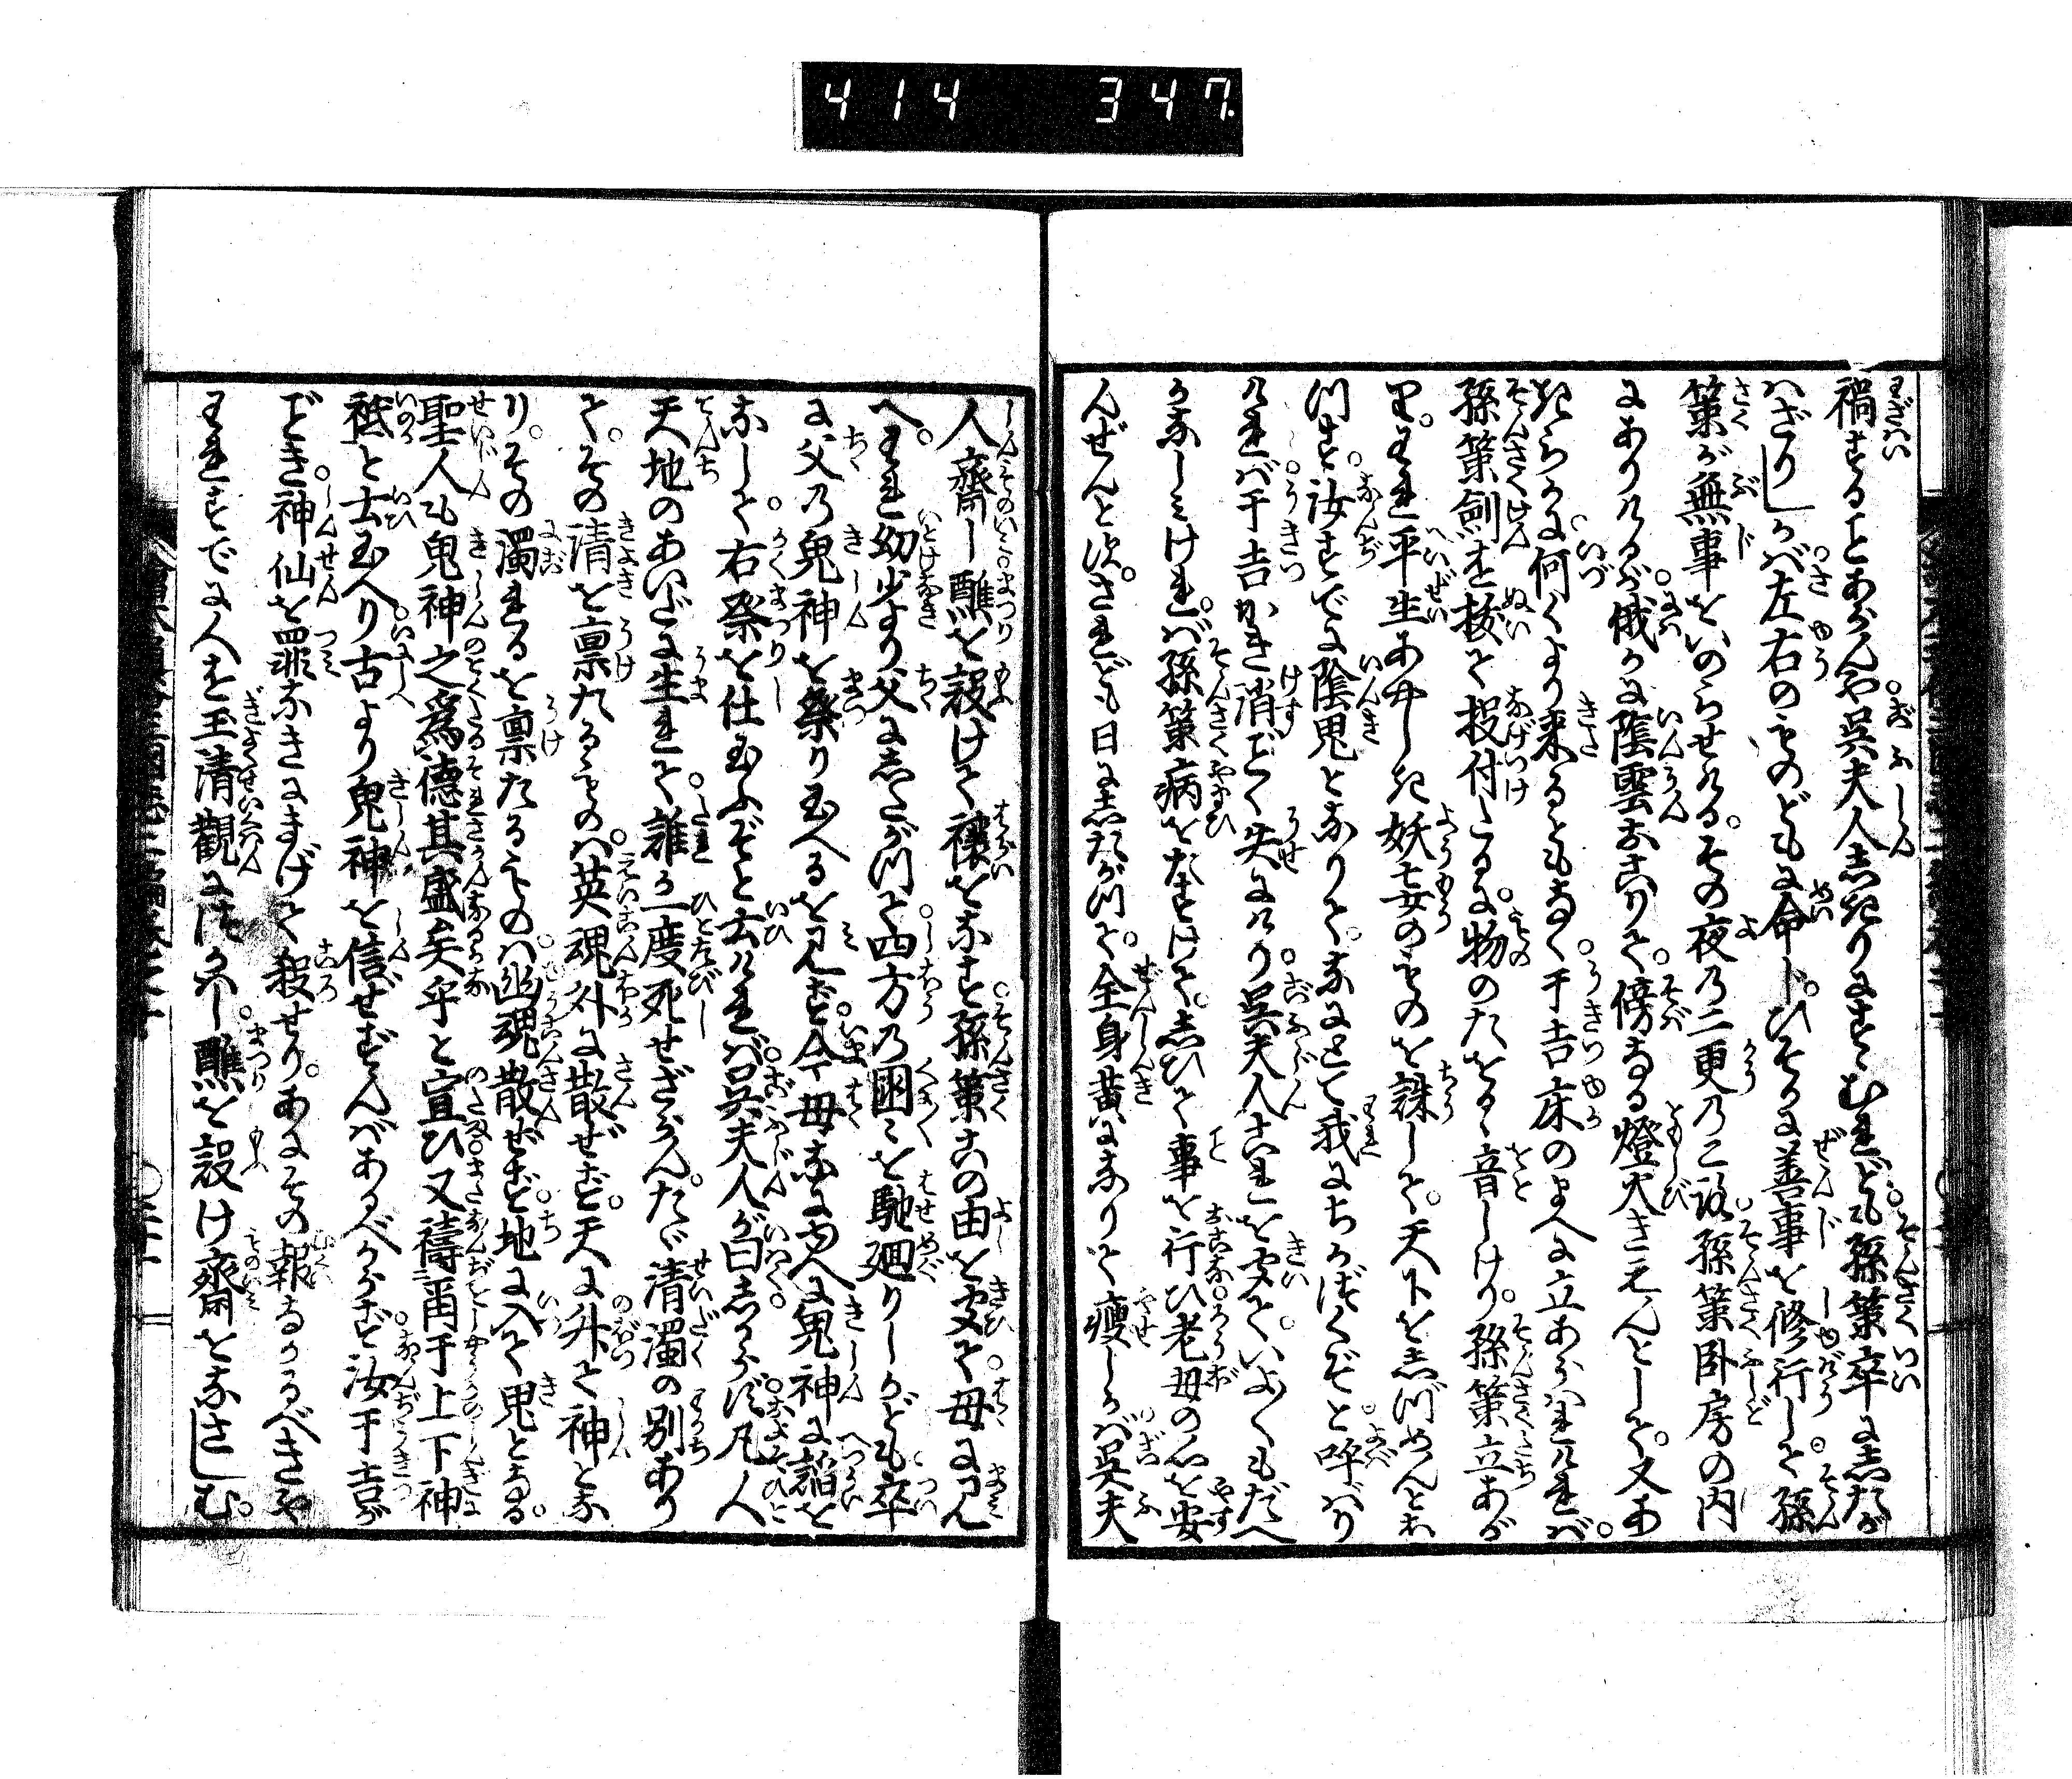 414 347
禍することあらんや呉夫人志きりにすゝむれども孫策卒に志たが
ハざりしかバ左右のものどもに命じひそかに善事を修行して孫
策が無事をいのらせける。その夜乃二更乃ころ孫策卧房の内
にありけるが俄かに陰雲おこりて傍なる燈火きえんとして又あ
きらかに何くより来るともなく于吉床のまへに立あらハれけれバ
孫策劍を拔て投付たるに物のたをるゝ音しけり孫策立あが
り。われ平生あやしき妖妄のものを誅して天下を志づめんとお
もひつるに汝すでに陰鬼となりて。なにとて我にちかづくぞと呼ばり
けれバ于吉かき消ごとく失にけり呉夫人これを聞ていよ〱もだへ
かなしみけれバ孫策病をたすけて。志ひて事を行ひ老母の心を安
んぜんと次。されども日に志たがつて。全身黄になりて瘦しかバ呉夫
人齋し醮を設けて禳をなす孫策この由を聞て母に見
へ。われ幼少より父に志たがつて四方乃國々を馳廻りしかども卒
に父乃鬼神を祭り玉へるを見ず今母なにゆへに鬼神に諂を
なして右祭を仕玉ふぞと云けれバ呉夫人が曰志からず凡人
天地のあいだに生れて誰か一度死せざらん。たゞ清濁の別あり
て。その清を稟たるものハ英魂外に散ぜず。天に升て神とな
り。その濁れるを稟たるものハ幽魂散ぜず地に入て鬼となる。
聖人も鬼神之爲德其盛矣乎と宣ひ又禱爾于上下神
祗と云玉へり古より鬼神を信ぜずんバあるべからず汝于吉が
ごとき神仙を罪なきにまげて殺せり。あにその報なかるべきや
われすでに人を玉清觀につかハし醮を設け齋をなさしむ。